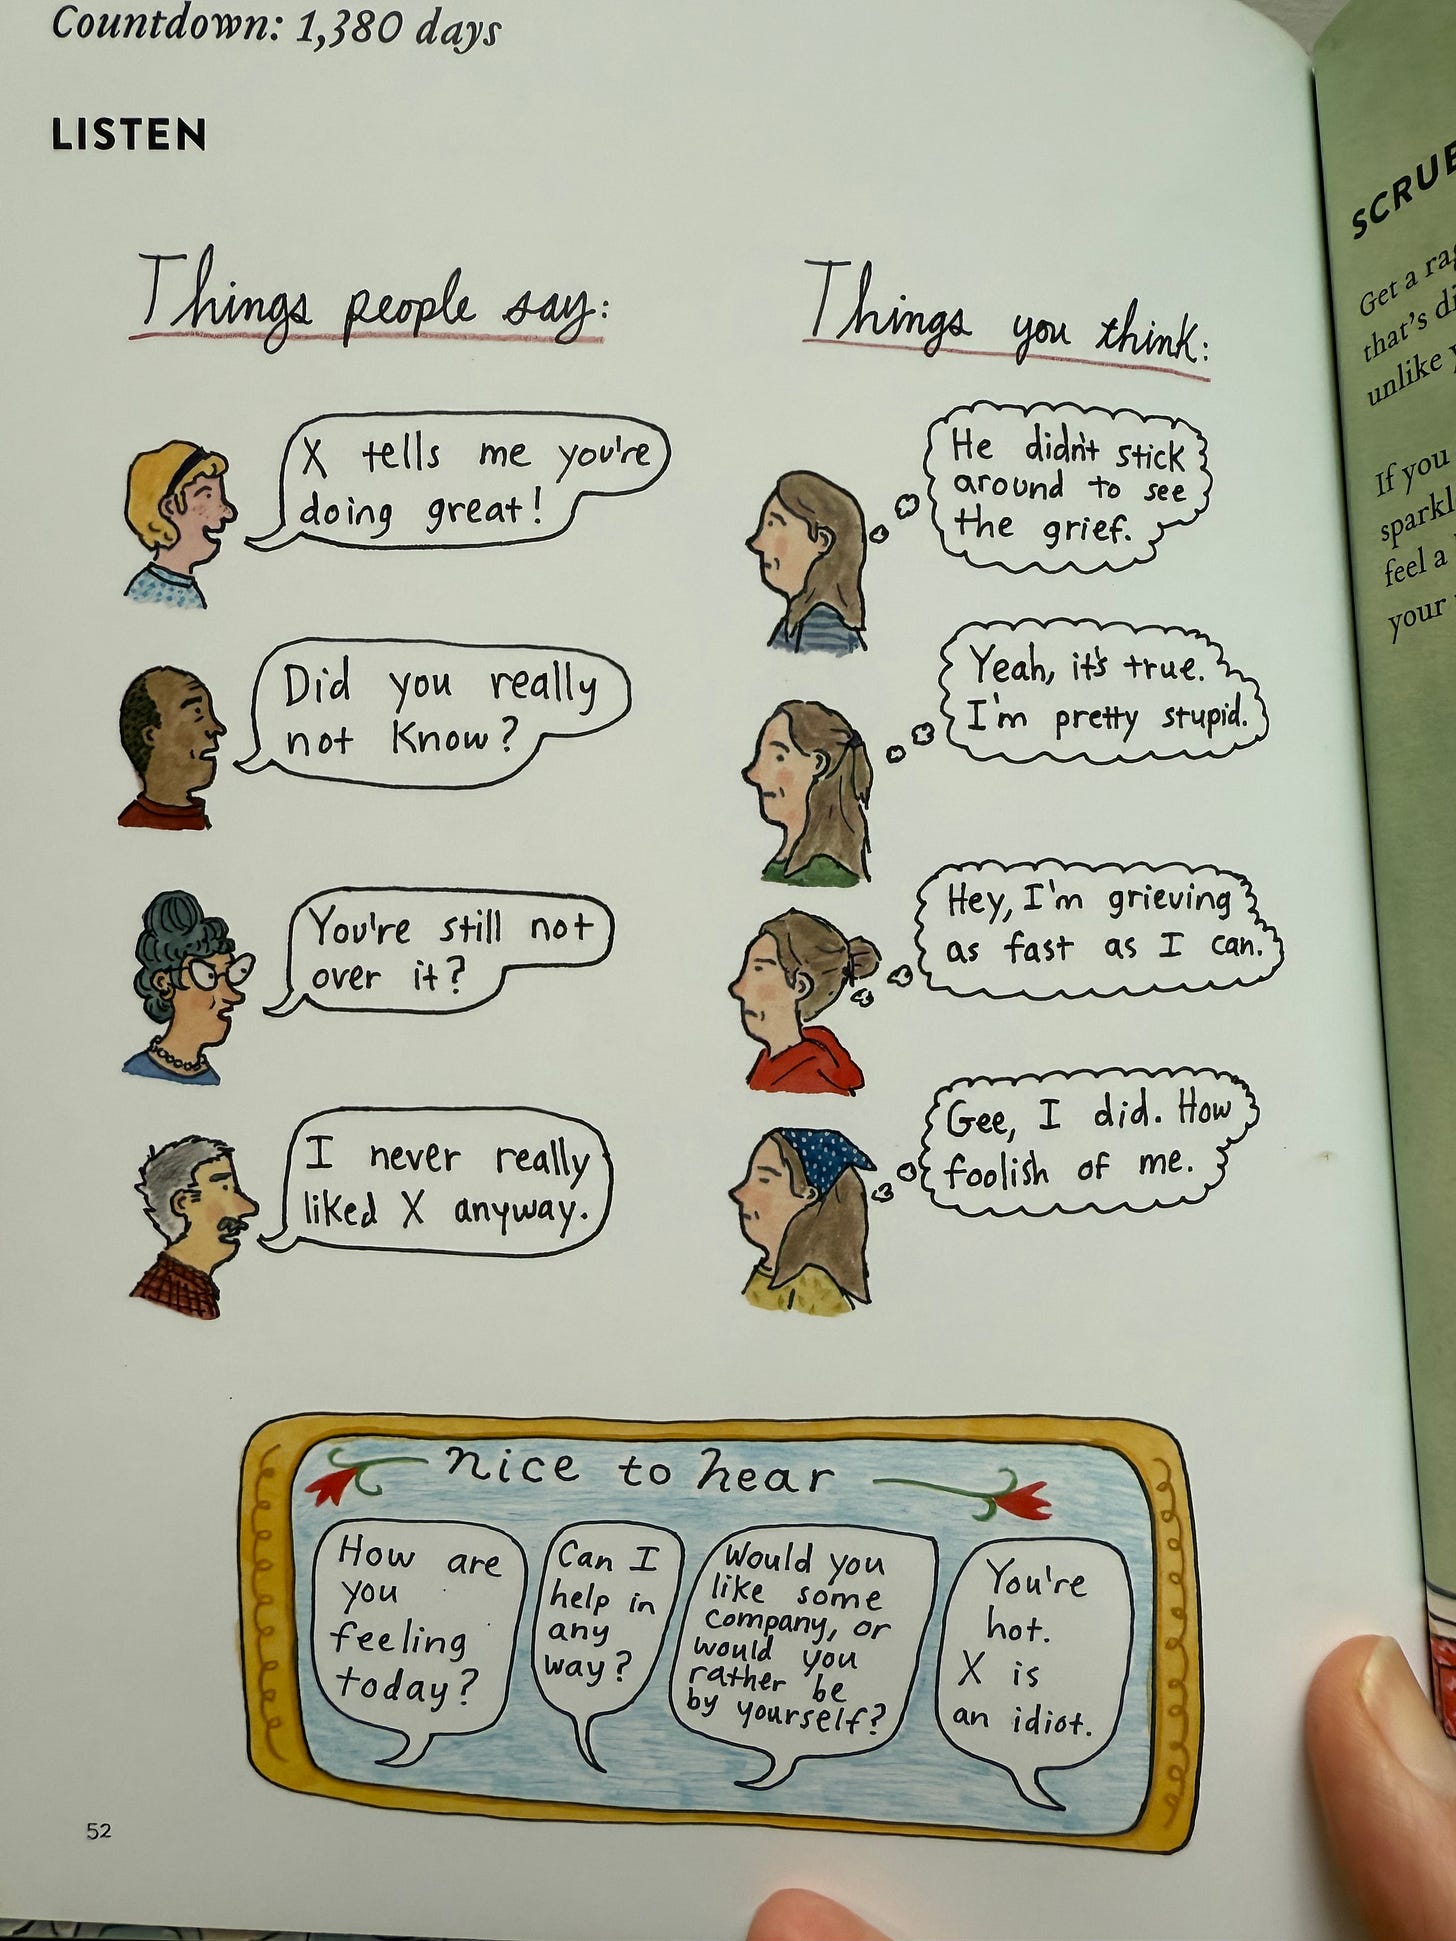 Countdown: 1,380 days
LISTEN
Things people say:
X tells me you're
doing great!
Did you really
not know?
You're still not
over it?
I never really
liked X anyway.
Things you think:
He didn't stick
around to see
the grief.
Yeah, it's true.
I'm pretty stupid.
Hey, I'm grieving
as fast as I can.
Gee, I did. How
foolish of me.
nice to hear
How are
you
feeling
today?
Can I
help in
any
way?
Would you
like some
company, or
would you
rather be
by yourself?
You're
hot.
X is
an idiot.
52
Get a
that's
unlike
If you
feel a
your